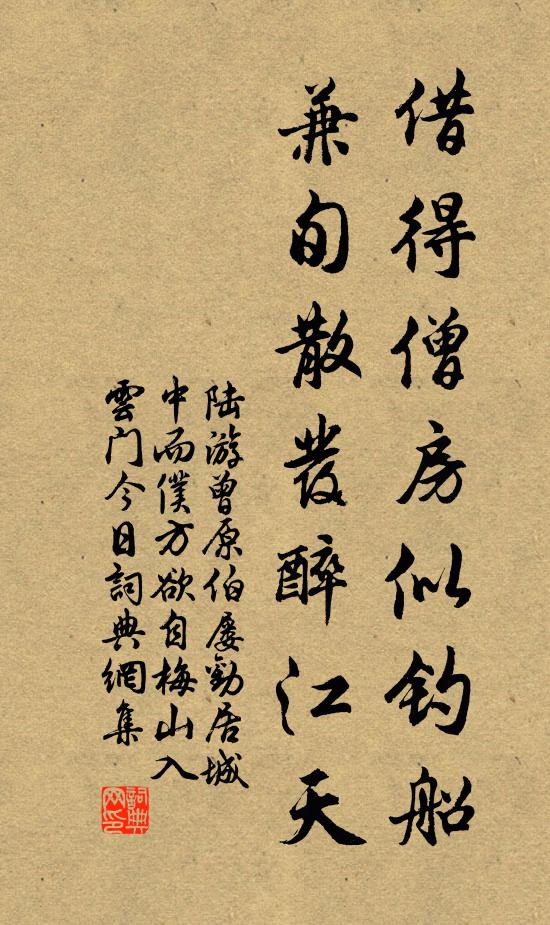 借得僧房似钓船
兼旬散發醉江天
陆游曾原伯屡勸居城
中而僕方欲自梅山入
雲门今日詞典網集
詞典
网印